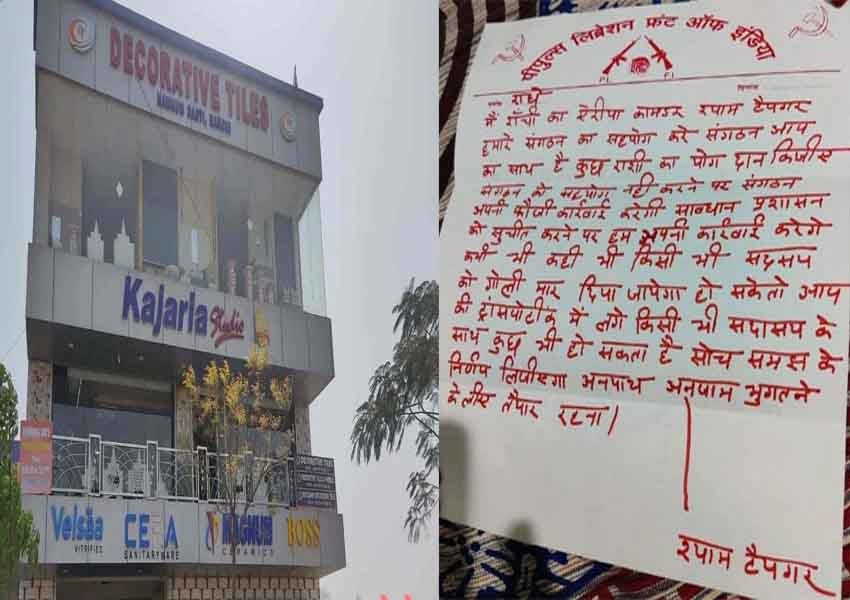 DECORATIVE TILES
Kajaria Studio
Velsaa
VITRIFIED
CERA
SANITARYWARE
MAGNUM
CERAMICS
BOSS
पीपुल्स लिबेशन फ्रंट ऑफ इंडिया
राधे
मैं राँची का ऐरीया कामडर श्याम टैपगर
हमारे संगठन का सहयोग करे संगठन आप
का साथ है कुछ राशी का योग दान किजीए
संगठन को सहयोग नही करने पर संगठन
अपनी फौजी कार्रवाई करेगी सावधान प्रशासन
को सुचीत करने पर हम अपनी कार्रवाई करेगे
कभी भी कही भी किसी भी सदस्य
को गोली मार दिया जायेगा हो सकेतो आप
की ट्रांसपोटींग में लगे किसी भी सदास्य के
साथ कुछ भी हो सकता है सोच समझ के
निर्णय लिजीएगा अनयाथ अनजाम भुगतने
के लीए तैयार रहना।
श्याम टैपगर